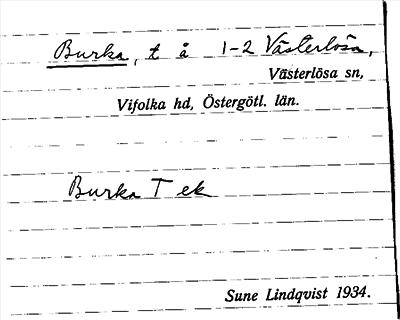 Burka, t å 1-2 Västerlösa,
Västerlösa sn,
Vifolka hd, Östergötl. län.
Burka T ek
Sune Lindqvist 1934.